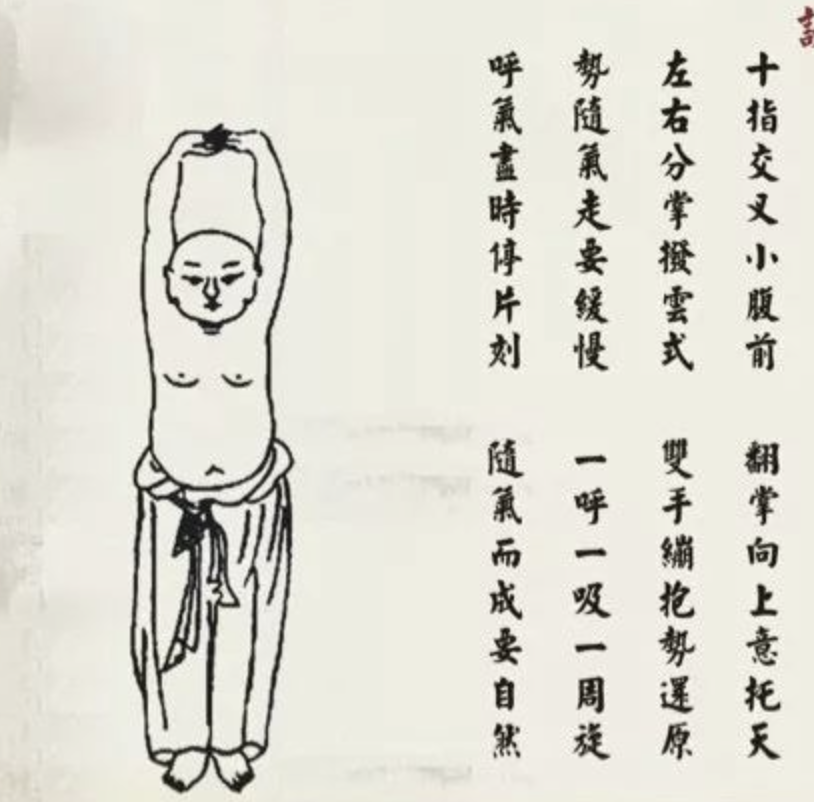 十指交叉小腹前 翻掌向上意托天
左右分掌撥雲式 雙手繃抱勢還原
勢隨氣走要緩慢 一呼一吸一周旋
呼氣盡時停片刻 隨氣而成要自然